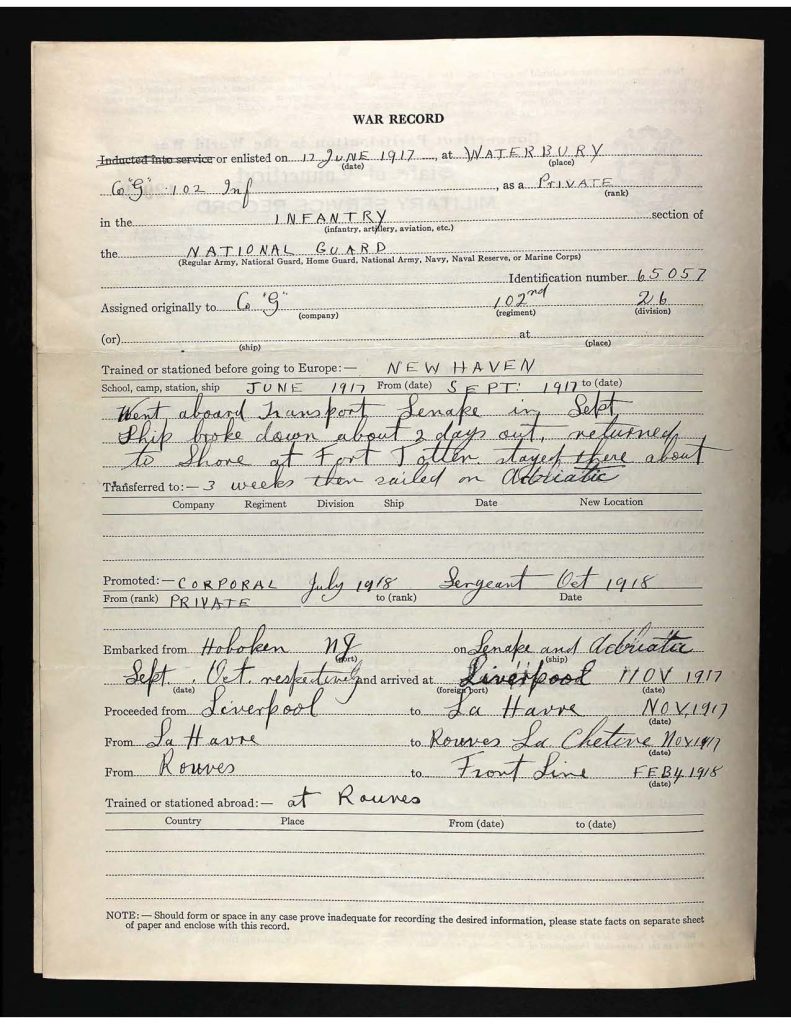 WAR RECORD
Inducted into service or enlisted on 17 JUNE 1917, at WATERBURY
(date) (place)
Co "G" 102 Inf, as a PRIVATE
(rank)
in the INFANTRY section of
(infantry, artillery, aviation, etc.)
the NATIONAL GUARD
(Regular Army, National Guard, Home Guard, National Army, Navy, Naval Reserve, or Marine Corps)
Identification number 65057
Assigned originally to Co "G" 102nd 26
(company) (regiment) (division)
(or) at
(ship) (place)
Trained or stationed before going to Europe:— NEW HAVEN
School, camp, station, ship JUNE 1917 From (date) SEPT. 1917 to (date)
Went aboard Transport Lenape in Sept
Ship broke down about 2 days out, returned
to Shore at Fort Totten. stayed there about
Transferred to:— 3 weeks then sailed on Adriatic
Company Regiment Division Ship Date New Location
Promoted:— CORPORAL July 1918 Sergeant Oct 1918
From (rank) PRIVATE to (rank) Date
Embarked from Hoboken NJ on Lenape and Adriatic
(port) (ship)
Sept. Oct. respectively and arrived at Liverpool NOV 1917
(date) (foreign port) (date)
Proceeded from Liverpool to La Havre NOV, 1917
(date)
From La Havre to Rouves La Chetive Nov 1917
(date)
From Rouves to Front Line FEB 4, 1918
(date)
Trained or stationed abroad:— at Rouves
Country Place From (date) to (date)
NOTE:— Should form or space in any case prove inadequate for recording the desired information, please state facts on separate sheet
of paper and enclose with this record.